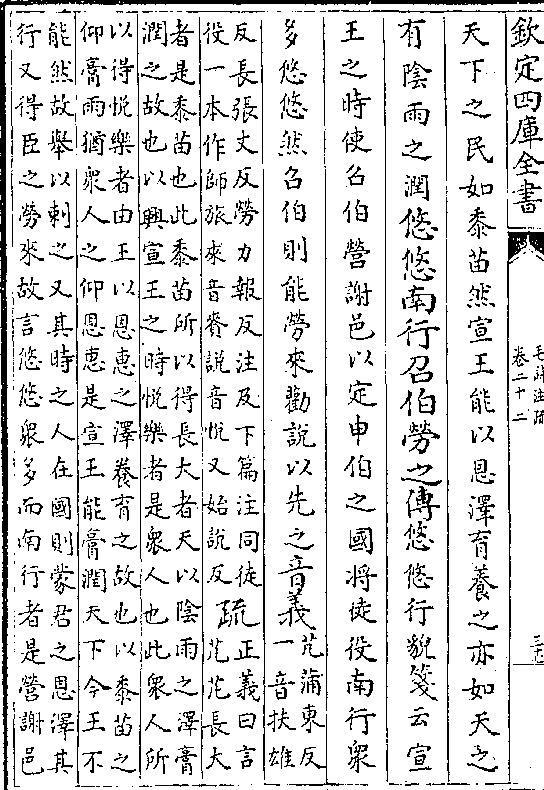 欽定四庫全書
毛詩注疏
卷二十二
天下之民如黍苗然宣王能以恩澤育養之亦如天之
有陰雨之潤悠悠南行召伯勞之傳悠悠行貌箋云宣
王之時使召伯營謝邑以定申伯之國將徒役南行衆
多悠悠然召伯則能勞來勸說以先之音義
芃蒲東反
一音扶雄
反長張丈反勞力報反注及下篇注同徒
役一本作師旅來音賚說音悅又始說反
疏
正義曰言
芃芃長大
者是黍苗也此黍苗所以得長大者天以陰雨之澤膏
潤之故也以興宣王之時悅樂者是衆人也此衆人所
以得悅樂者由王以恩惠之澤養育之故也以黍苗之
仰膏雨猶衆人之仰恩惠是宣王能膏潤天下今王不
能然故舉以刺之又其時之人在國則蒙君之恩澤其
行又得臣之勞來故言悠悠衆多而南行者是營謝邑